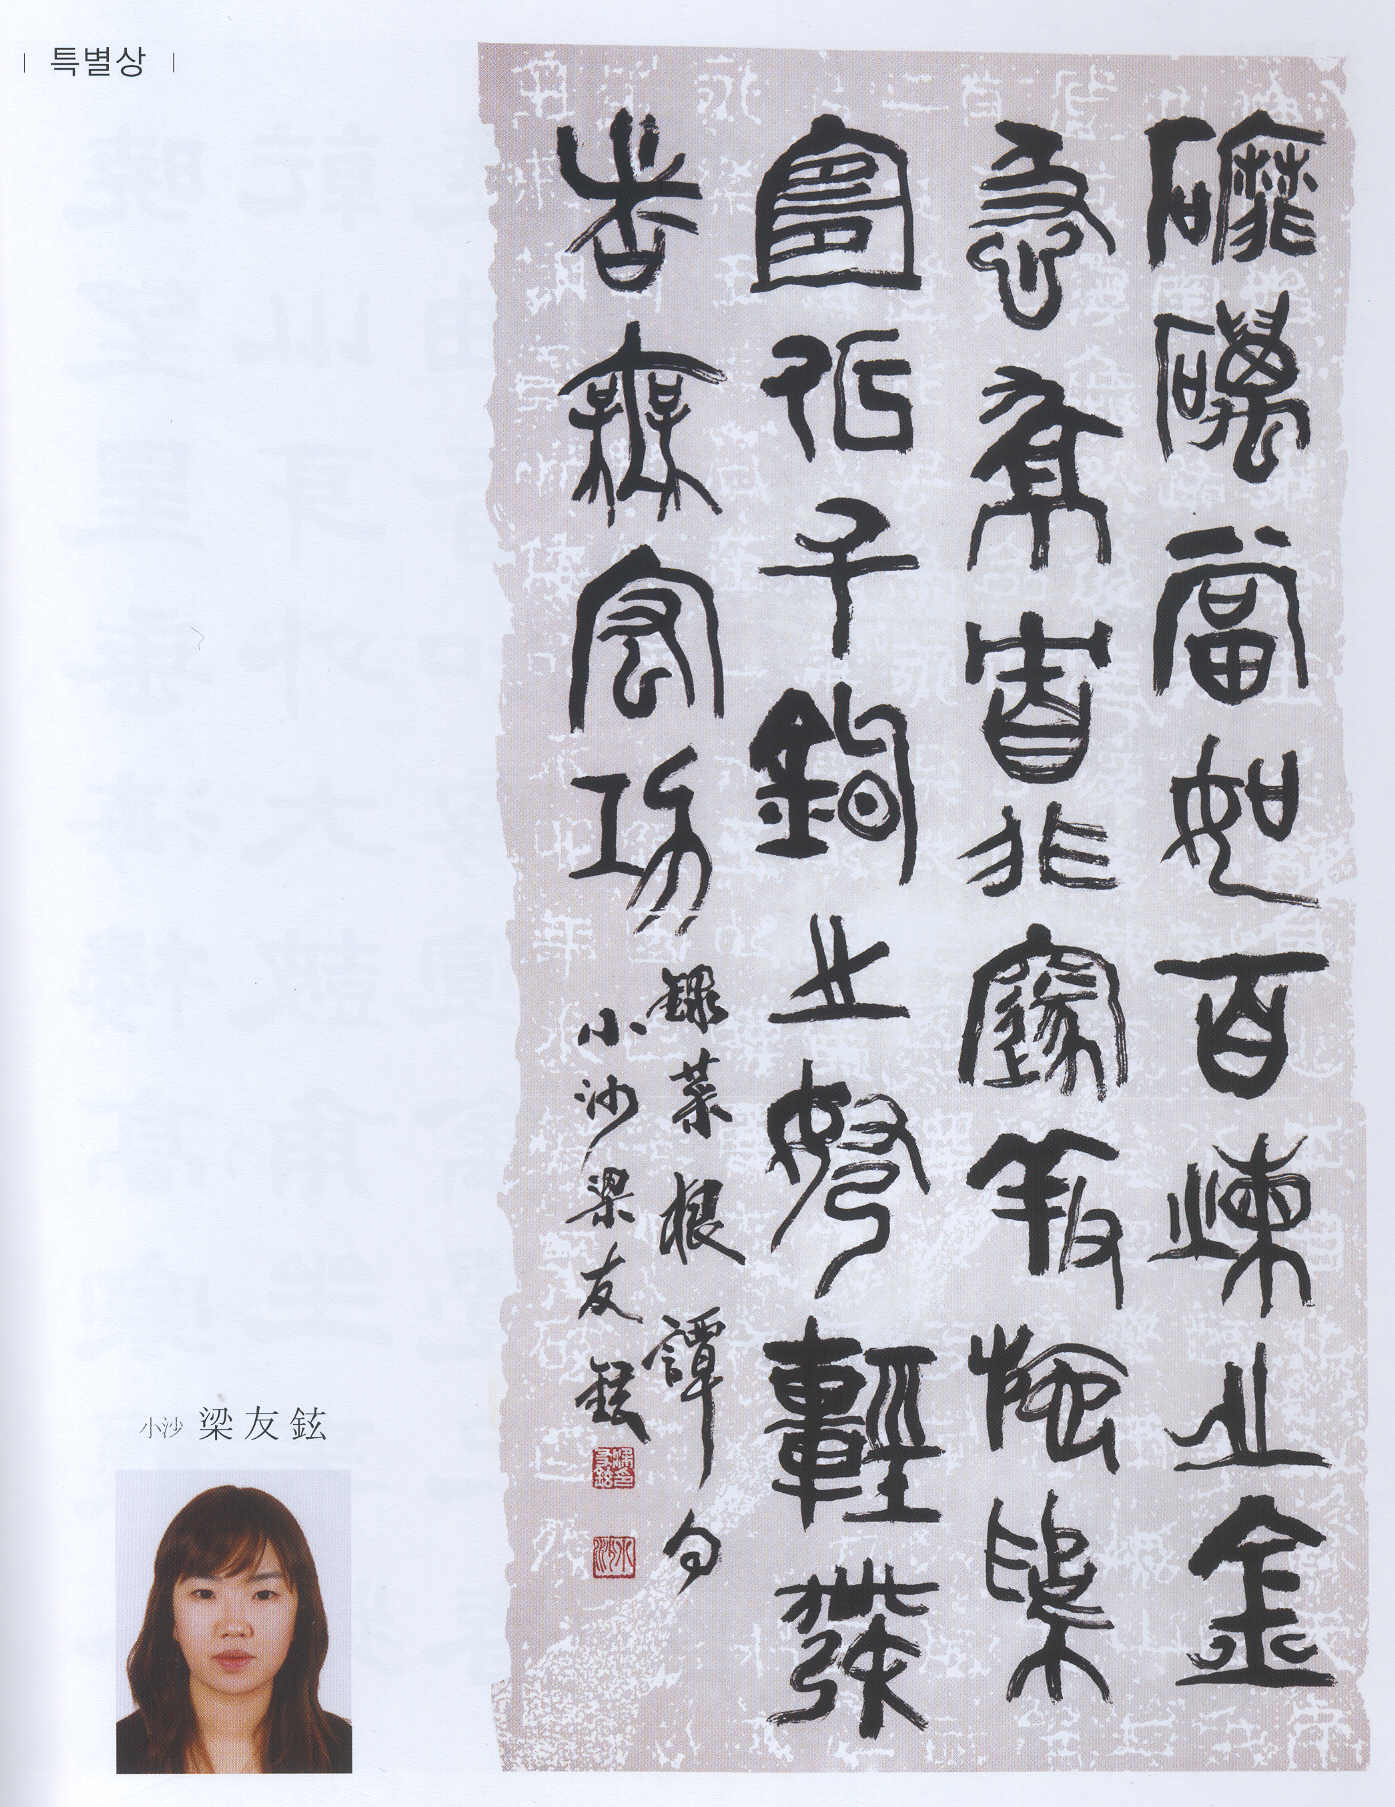 특별상
磨礪當如百煉之金
急就者非邃養施為
宜似千鈞之弩輕發
者無宏功
錄菜根譚句
小沙梁友鉉
小沙 梁友鉉